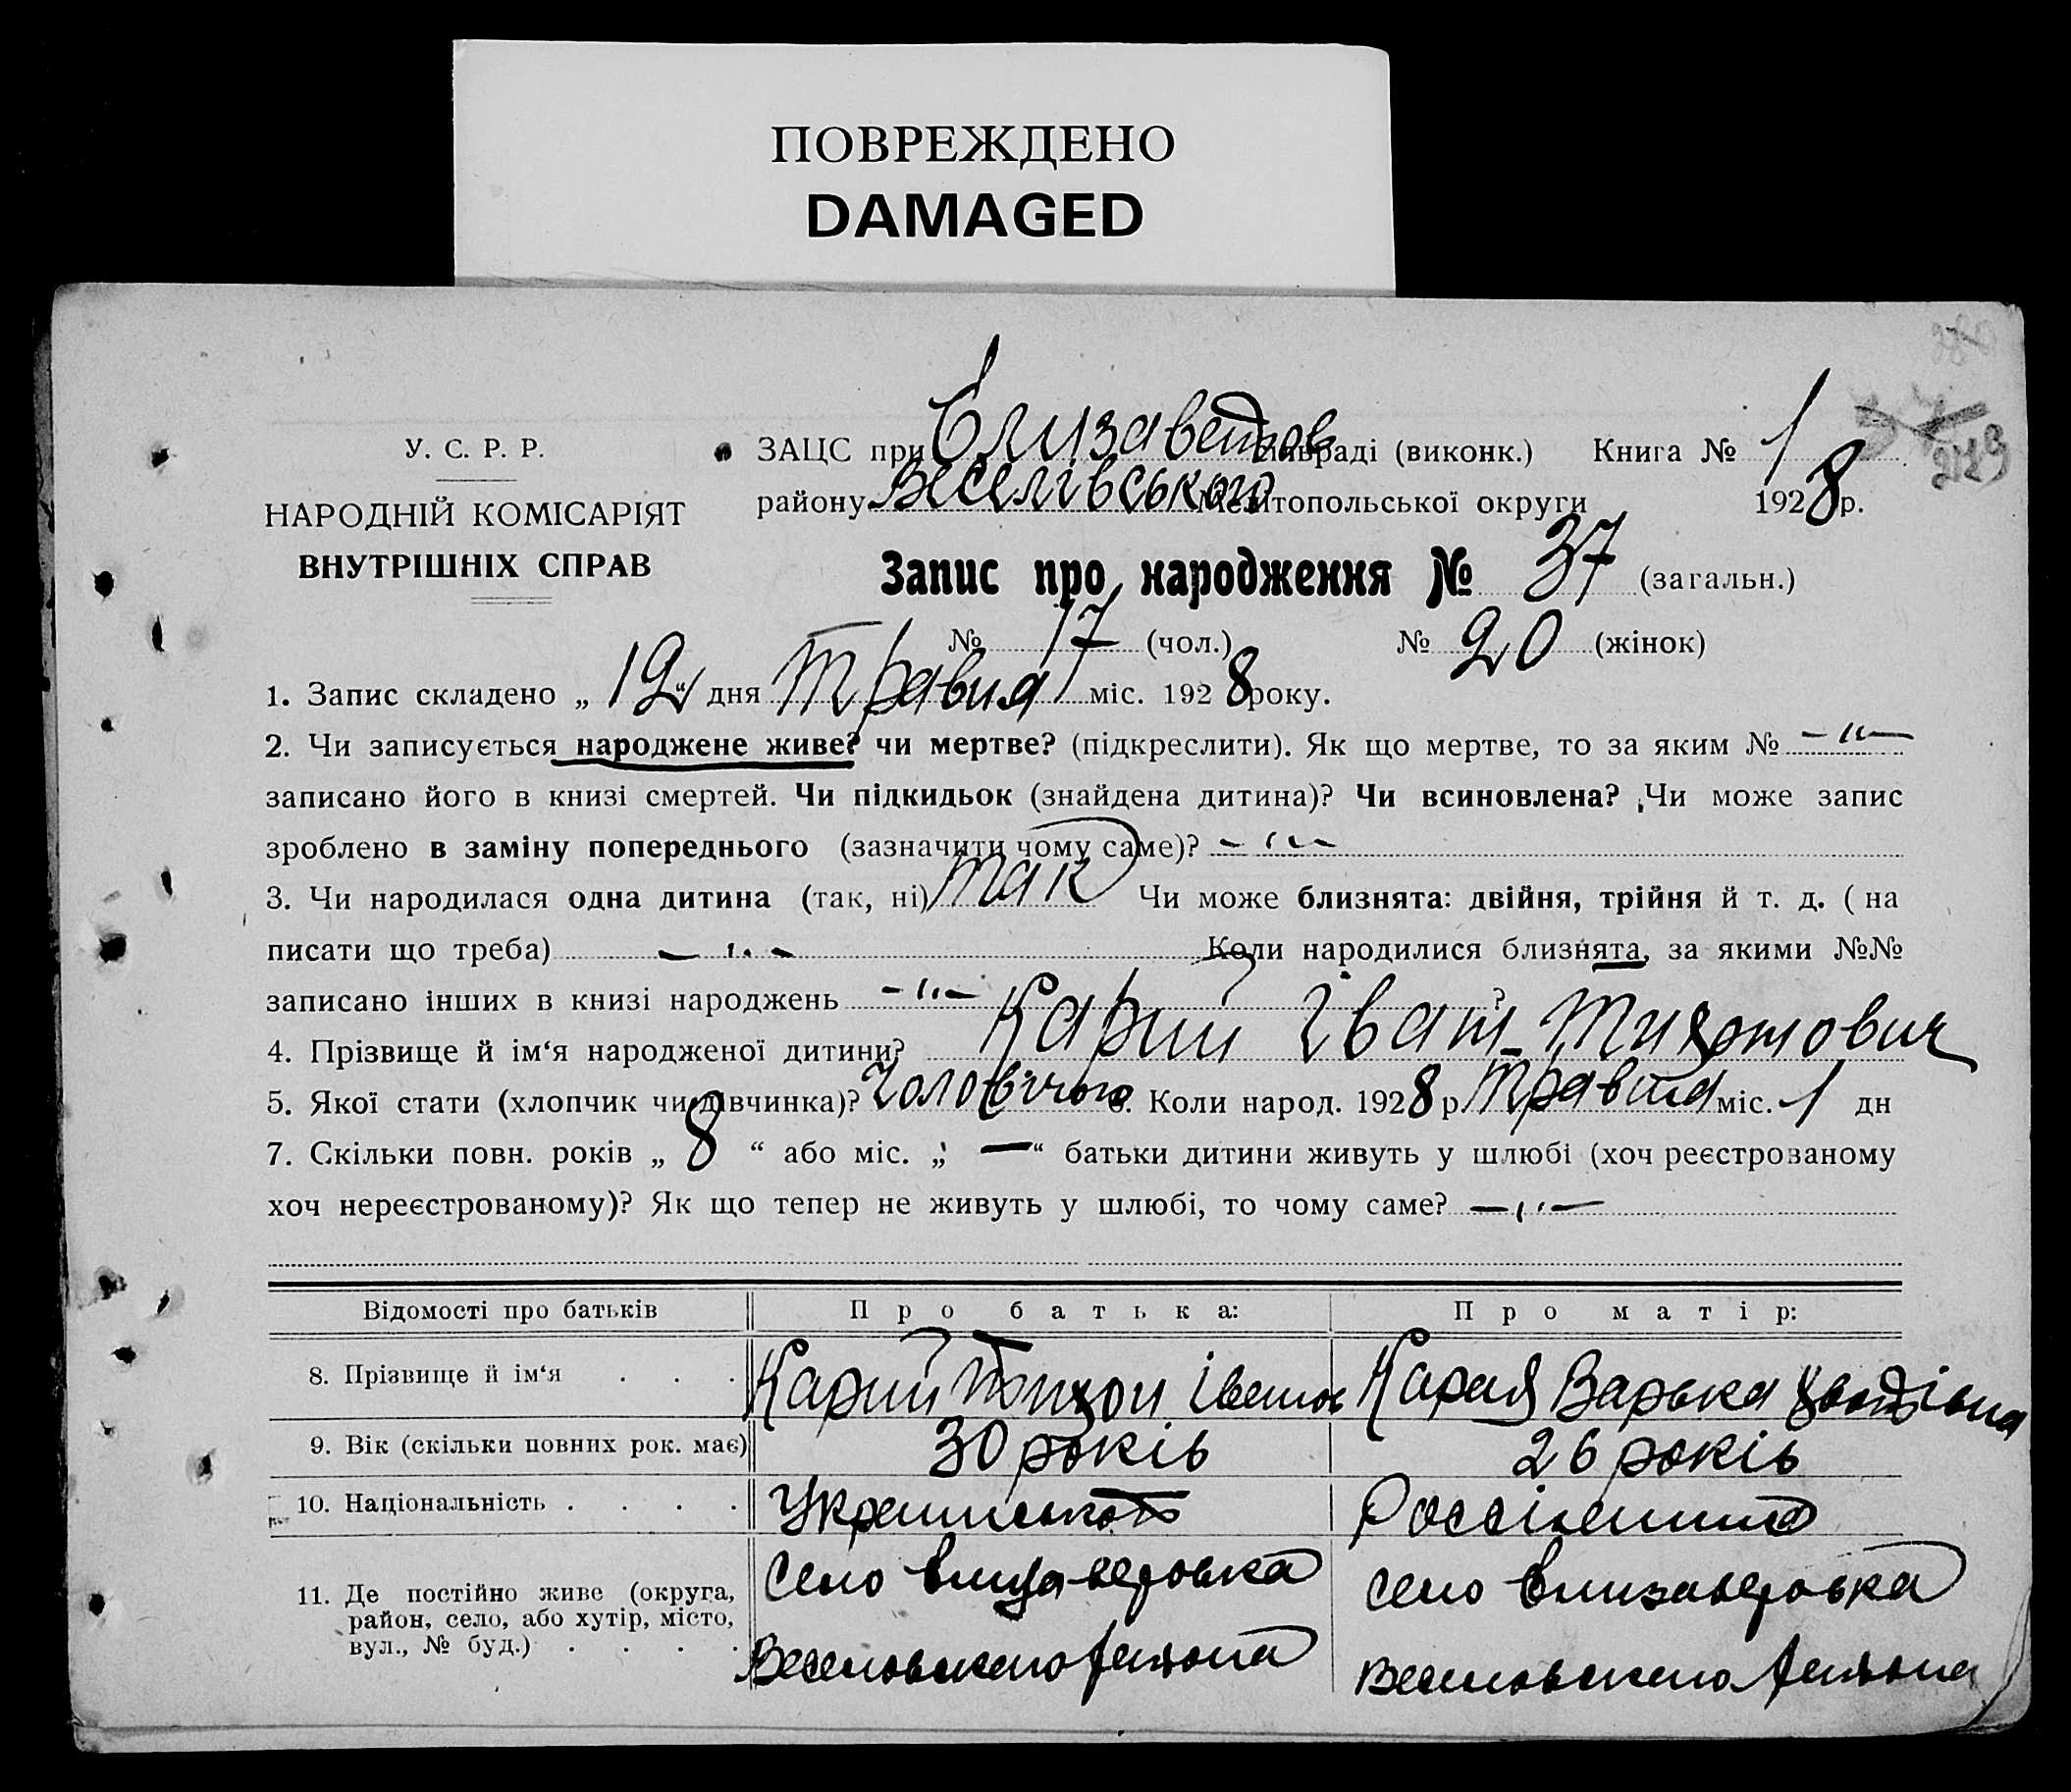 ПОВРЕЖДЕНО
DAMAGED
У. С. Р. Р.
НАРОДНІЙ КОМІСАРІЯТ
ВНУТРІШНІХ СПРАВ
ЗАЦС при Єлизаветов сільраді (виконк.) Книга № 1
району Веселівського Мелітопольської округи 1928 р.
Запис про народження № 37 (загальн.)
№ 17 (чол.) № 20 (жінок)
1. Запис складено „ 12 “ дня Травня міс. 1928 року.
2. Чи записується народжене живе? чи мертве? (підкреслити). Як що мертве, то за яким № – " –
записано його в книзі смертей. Чи підкидьок (знайдена дитина)? Чи всиновлена? Чи може запис
зроблено в заміну попереднього (зазначити чому саме)? – " –
3. Чи народилася одна дитина (так, ні) так Чи може близнята: двійня, трійня й т. д. ( на
писати що треба) – " – Коли народилися близнята, за якими №№
записано інших в книзі народжень – " – ?
4. Прізвище й ім‘я народженої дитини? Карий Іван Тихонович
5. Якої стати (хлопчик чи дівчинка)? Чоловічого 6. Коли народ. 1928 р. Травня міс. 1 дн
7. Скільки повн. років „ 8 “ або міс. „ — “ батьки дитини живуть у шлюбі (хоч реєстрованому
хоч нереєстрованому)? Як що тепер не живуть у шлюбі, то чому саме? – " –
Відомості про батьків Про батька: Про матір:
8. Прізвище й ім‘я . . . Карий Тихон Іванов Карая Варька
9. Вік (скільки повних рок. має) 30 років 26 років
10. Національність . . . .
11. Де постійно живе (округа,
район, село, або хутір, місто,
вул., № буд.) . . . .
село Елизаветовка село Елизаветовка
Веселовского района Веселовского района